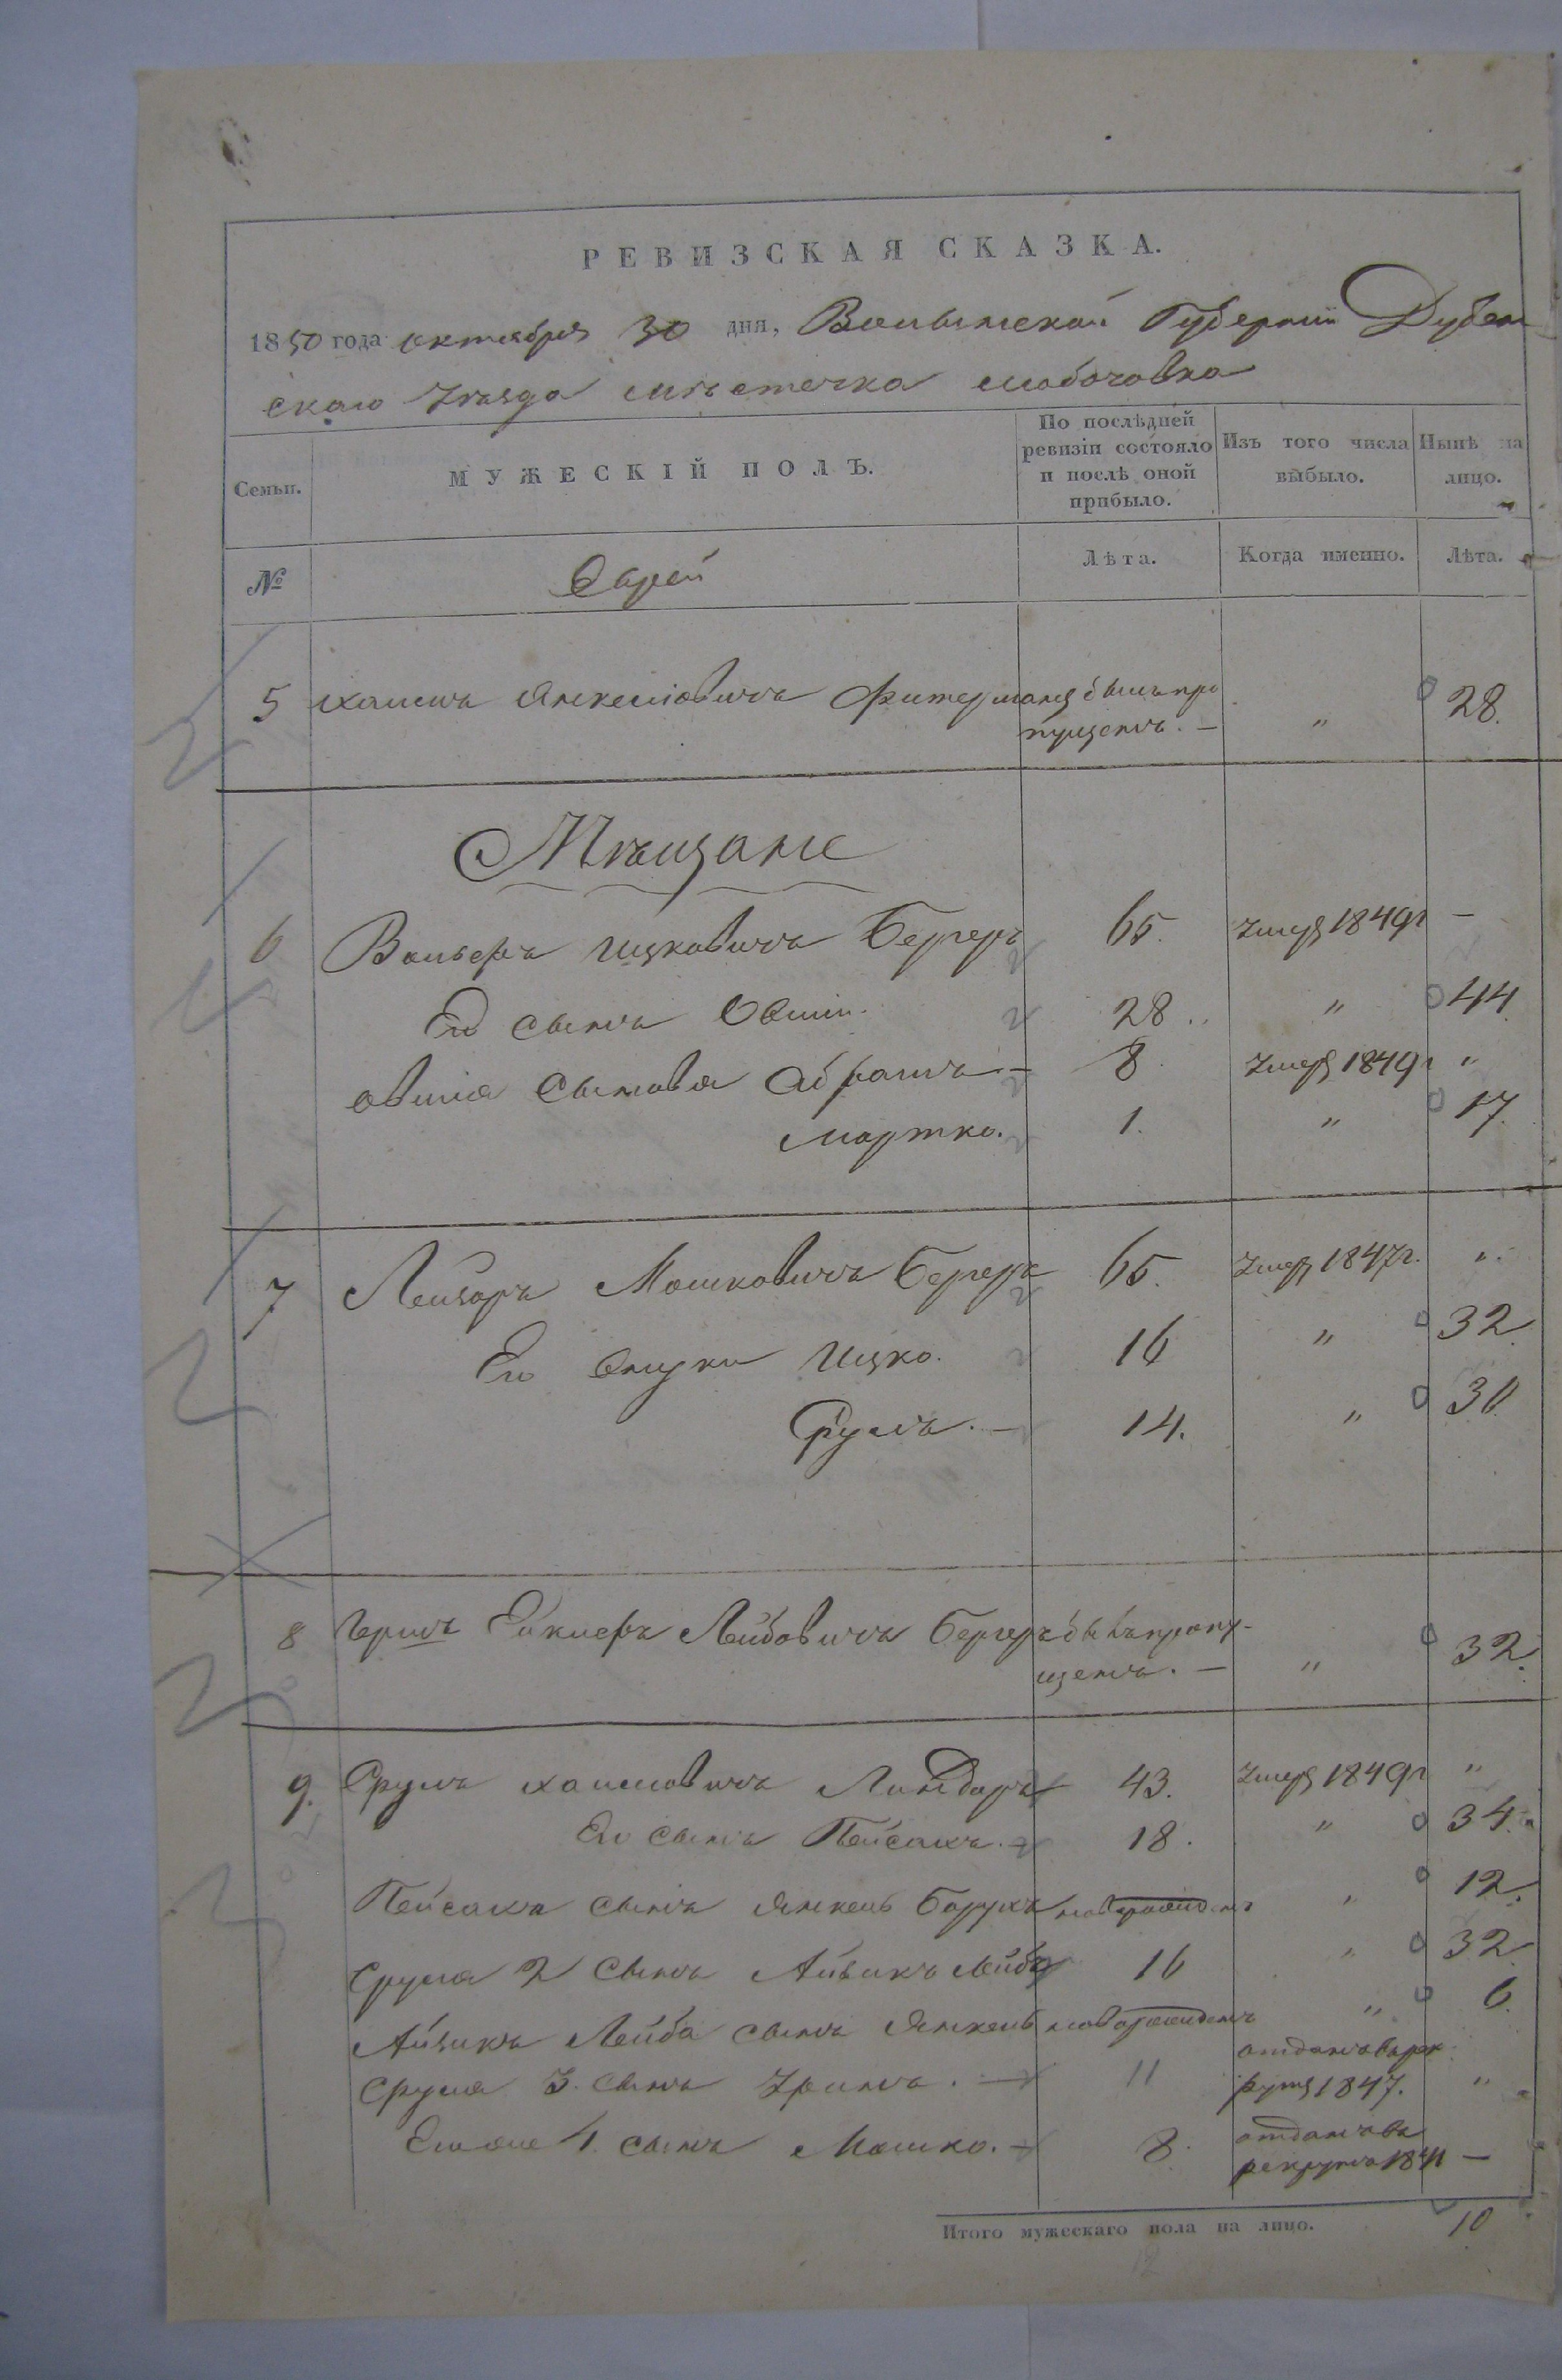 РЕВИЗСКАЯ СКАЗКА.
1850 года октября 30 дня, Волынской Губернии Дубен
скаго Уезда местечка
Семьи. МУЖЕСКІЙ ПОЛЪ. По послѣдней ревизіи состояло и послѣ оной прибыло. Изъ того числа выбыло. Нынѣ на лицо.
№ Еврей Лѣта. Когда именно. Лѣта.
5 Хаимъ Янкеліовичъ Фитерманъ былъ про
пущенъ. — " 28.
Мѣщане
6 Вольфъ Ицковичъ Бергеръ 65. умеръ 1849г —
Его сынъ Овшій. 28. " 44
Овшія сыновья Абрамъ — 8. умеръ 1849г "
Мортко. 1. " 17.
7 Лейзоръ Мошковичъ Бергеръ 65. умеръ 1847г. "
Его внуки Ицко. 16 " 32.
Срулъ. — 14. " 30.
8 Герш Лейбовичъ Бергеръ былъ пропу-
щенъ. — " 32.
9. Срулъ Хаимовичъ Линдоръ 43. умеръ 1849г "
Его сынъ Пейсахъ. 18. " 34.
Пейсаха сынъ Янкель Борухъ новорожденъ " 12.
Сруля 2 сынъ Айзикъ Лейба 16 " 32
Айзика Лейба сынъ Янкель новорожденъ " 6.
Сруля 3. сынъ — 11 отданъ въ рек
рути 1847. "
Его же 4. сынъ Мошко. — 8. отданъ въ
рекрути —
Итого мужескаго пола на лицо. 10